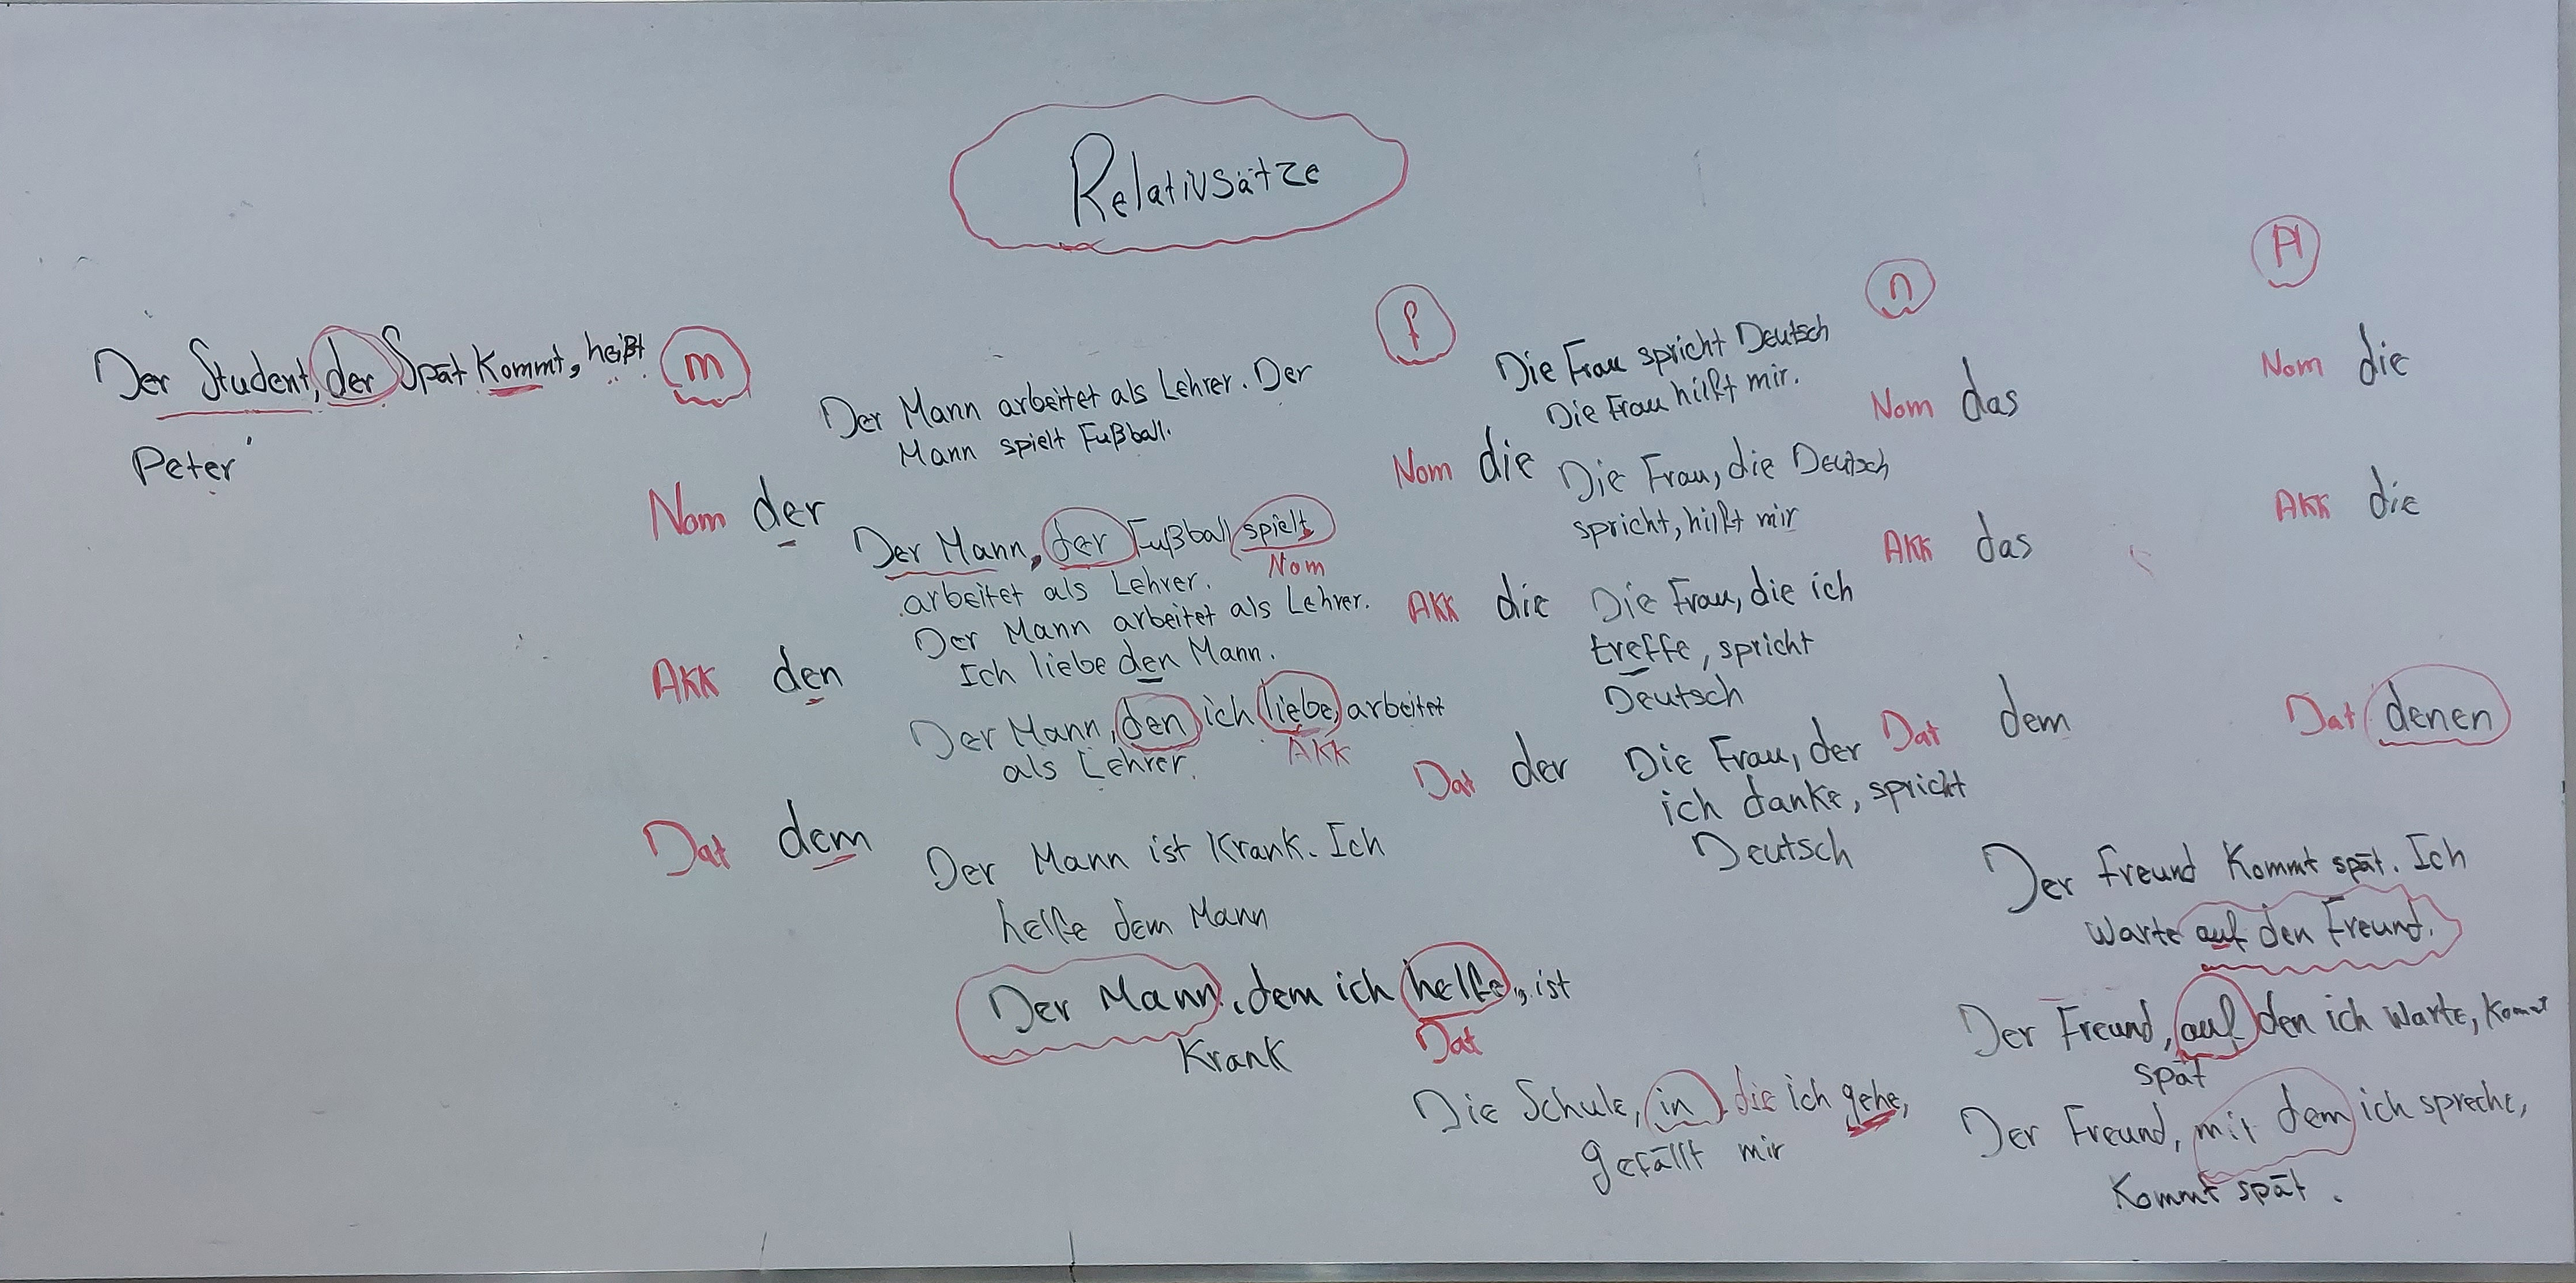 Relativsätze
Der Student, der Spät Kommt, heißt
Peter
m
Der Mann arbeitet als Lehrer. Der
Mann spielt Fußball.
Nom der
Der Mann, der Fußball spielt
Nom
arbeitet als Lehrer.
Der Mann arbeitet als Lehrer.
Ich liebe den Mann.
AKK den
Der Mann, den ich liebe, arbeitet
AKK
als Lehrer.
Dat dem
Der Mann ist Krank. Ich
helfe dem Mann
Der Mann, dem ich helfe, ist
Dat
Krank
f
Die Frau spricht Deutsch
Die Frau hilft mir.
Nom die
Die Frau, die Deutsch
spricht, hilft mir
AKK die
Die Frau, die ich
treffe, spricht
Deutsch
Dat der
Die Frau, der
ich danke, spricht
Deutsch
Die Schule, in die ich gehe,
gefällt mir
n
Nom das
AKK das
Dat dem
Pl
Nom die
AKK die
Dat denen
Der Freund Kommt spät. Ich
warte auf den Freund.
Der Freund, auf den ich warte, Kommt
spät
Der Freund, mit dem ich spreche,
Kommt spät.